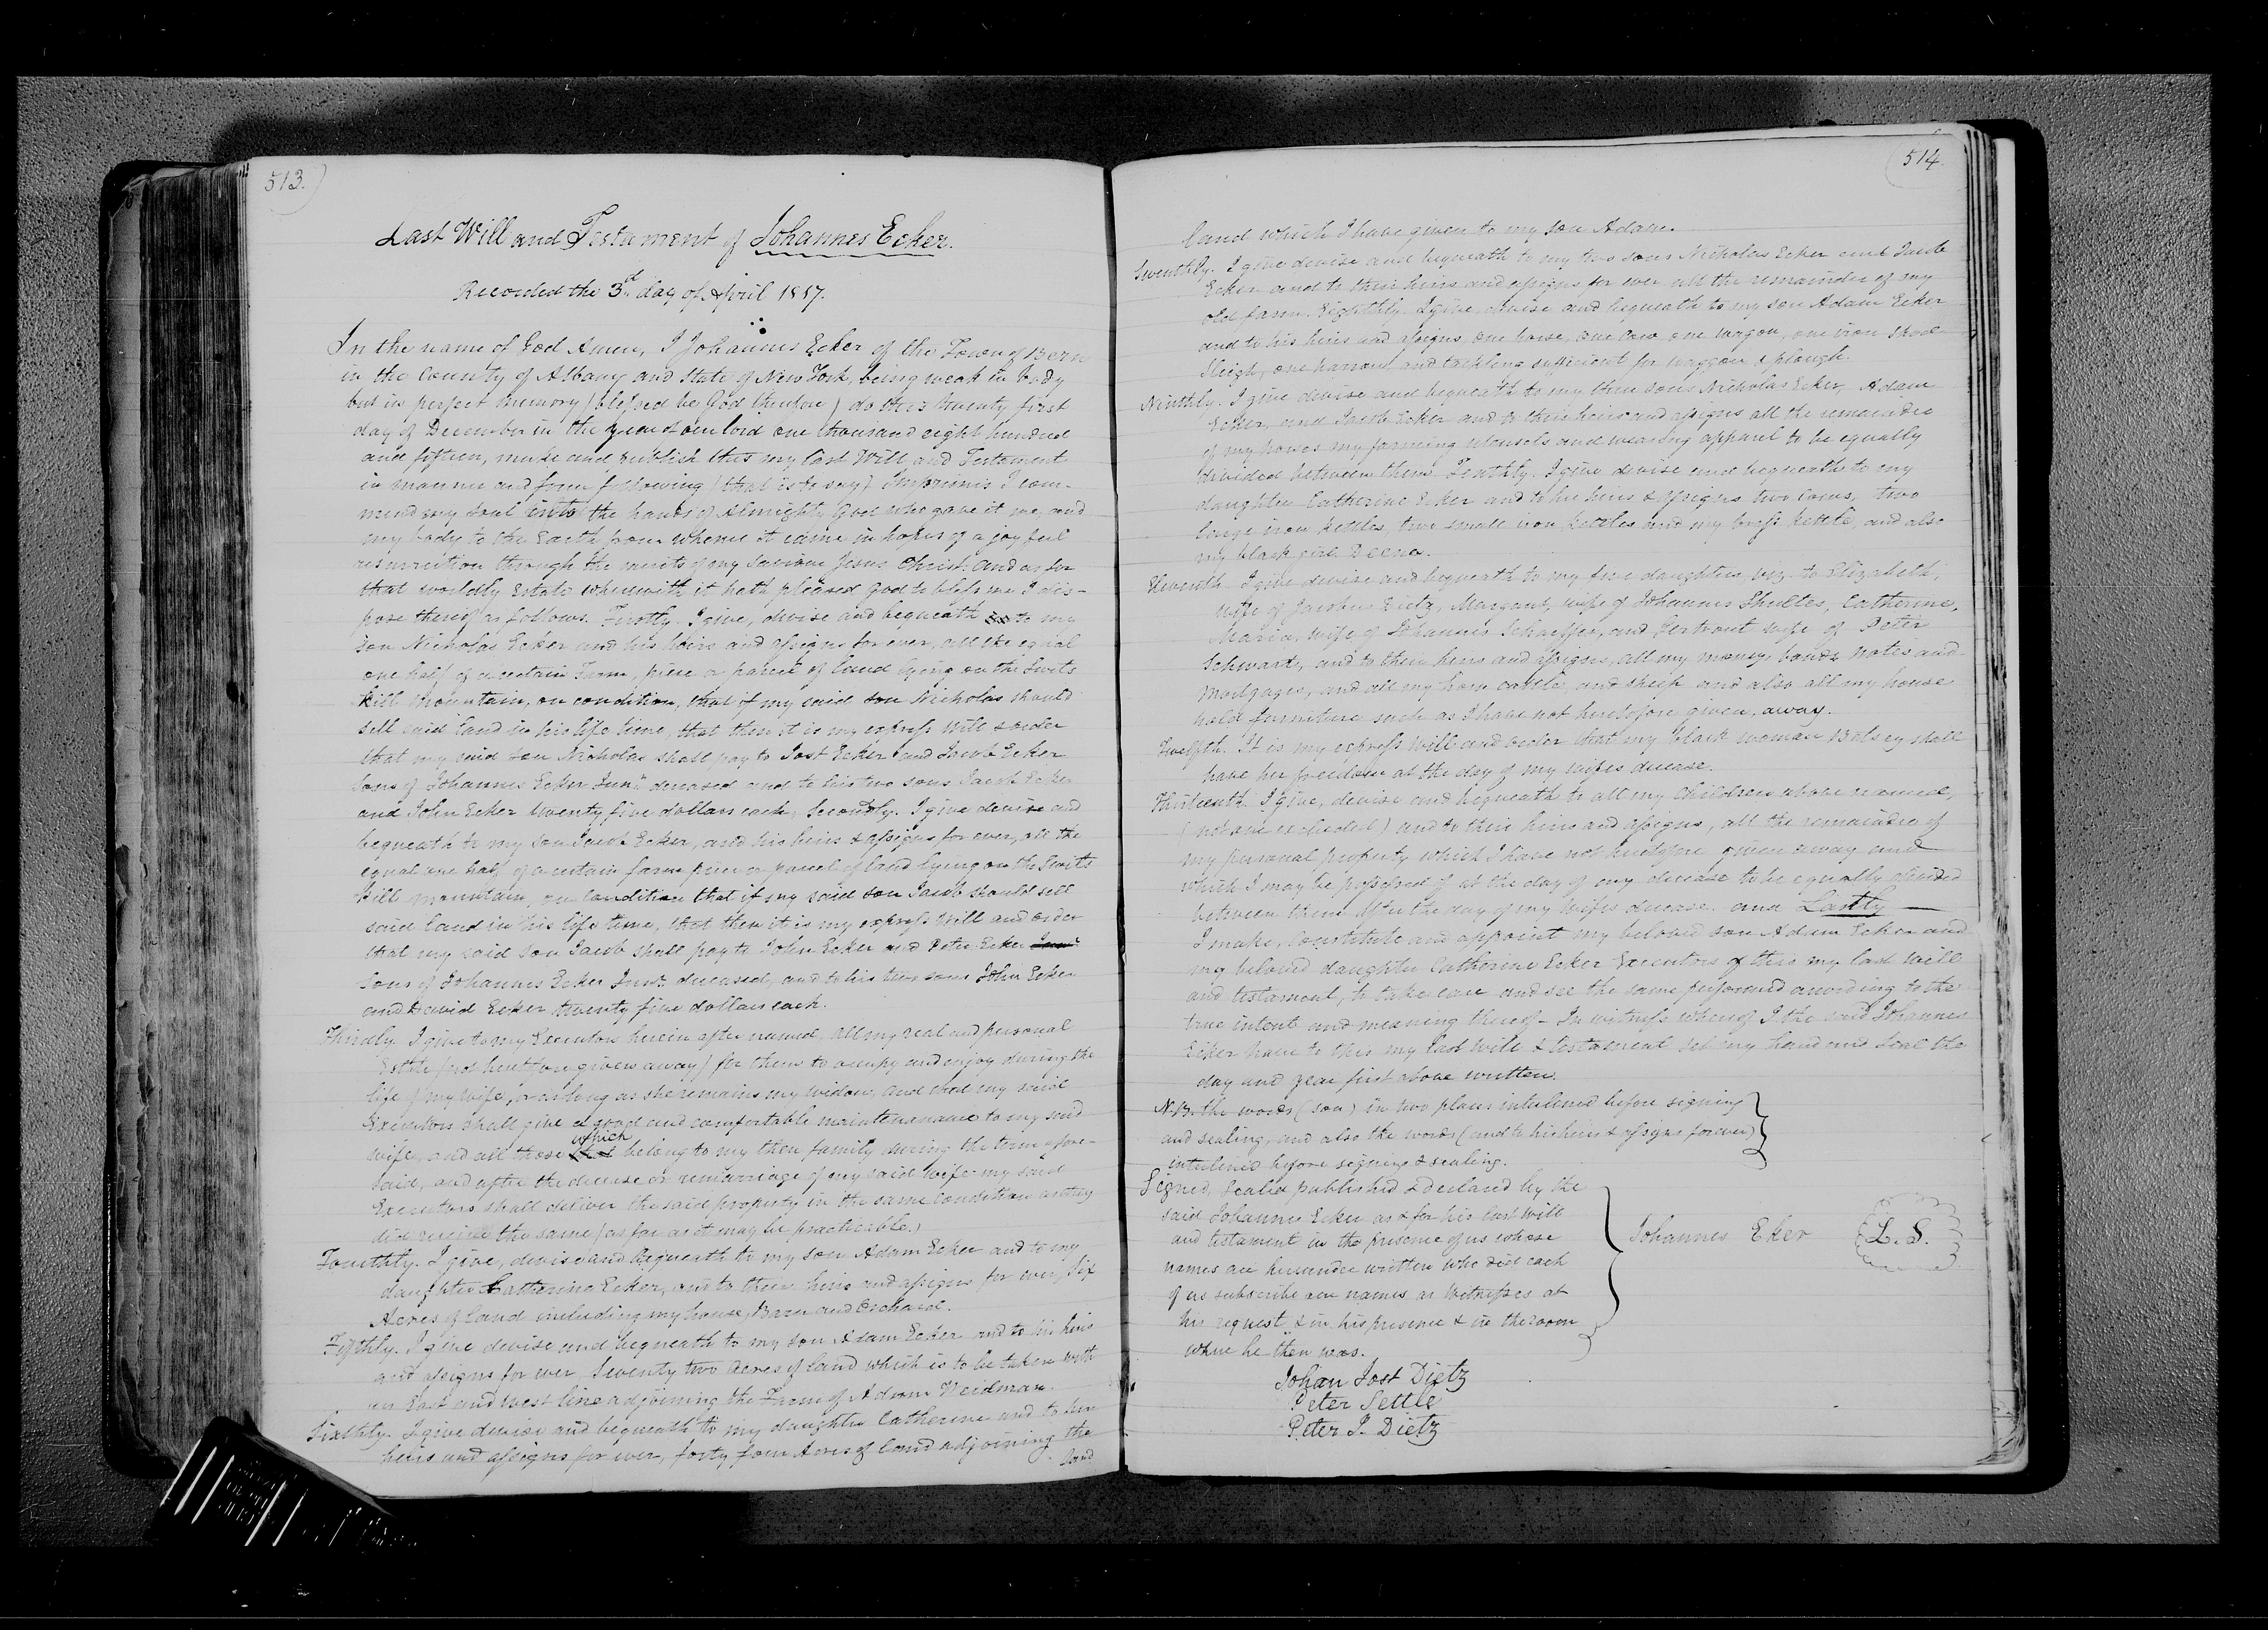 513.
Last Will and Testament of Johannes Ecker.
Recorded the 3d day of April 1817.
In the name of God Amen, I Johannes Ecker of the Town of Bern
in the County of Albany and State of New York, being weak in body
but in perfect memory (blessed be God therefore) do this twenty first
day of December in the year of our lord one thousand eight hundred
and fifteen, make and publish this my last Will and Testament
in manner and form following (that is to say) Imprimis I com-
mend my soul into the hands of Almighty God who gave it me, and
my body to the Earth from whence it came in hopes of a joyful
resurrection through the merits of my Saviour Jesus Christ; and as for
that worldly Estate wherewith it hath pleased God to bless me I dis-
pose thereof as follows. Firstly. I give, devise and bequeath to my
son Nicholas Ecker and his heirs and assigns for ever, all the equal
one half of a certain Farm, piece or parcel of land lying on the Swits
kill mountain, on condition, that if my said son Nicholas should
sell said land in his life time, that then it is my express Will & order
that my said son Nicholas shall pay to Jost Ecker and Jacob Ecker
sons of Johannes Ecker Junr. deceased and to his two sons Jacob Ecker
and John Ecker twenty five dollars each, Secondly. I give devise and
bequeath to my son Jacob Ecker, and his heirs & assigns for ever, all the
equal one half of a certain farm piece or parcel of land lying on the Swits
kill mountain, on condition that if my said son Jacob should sell
said land in his life time, that then it is my express Will and order
that my said son Jacob shall pay to John Ecker and Peter Ecker
sons of Johannes Ecker Junr. deceased, and to his two sons John Ecker
and David Ecker twenty five dollars each.
Thirdly. I give to my Executors herein after named, all my real and personal
Estate (not heretofore given away) for them to occupy and enjoy during the
life of my wife, or as long as she remains my widow, and that my said
Executors shall give a good and comfortable maintenance to my said
wife, and all those which belong to my then family during the term afore-
said, and after the decease or remarriage of my said wife my said
Executors shall deliver the said property in the same condition as they
did receive the same (as far as it may be practicable.)
Fourthly. I give, devise and bequeath to my son Adam Ecker and to my
daughter Catherine Ecker, and to their heirs and assigns for ever, Six
Acres of land including my house, Barn and Orchard.
Fifthly. I give devise and bequeath to my son Adam Ecker and to his heirs
and assigns for ever Seventy two Acres of land which is to be taken with
an East and West line adjoining the Farm of Adam Weidman.
Sixthly. I give devise and bequeath to my daughter Catherine and to her
heirs and assigns for ever, forty four Acres of land adjoining the
land
514.
land which I have given to my son Adam.
Seventhly. I give devise and bequeath to my two sons Nicholas Ecker and Jacob
Ecker and to their heirs and assigns for ever all the remainder of my
old farm. Eighthly. I give, devise and bequeath to my son Adam Ecker
and to his heirs and assigns, one horse, one Cow one wagon, one iron shod
Sleigh, one harrow and tackling sufficient for waggon & plough.
Ninthly. I give devise and bequeath to my three sons Nicholas Ecker, Adam
Ecker, and Jacob Ecker and to their heirs and assigns all the remainder
of my horses my farming utensels and wearing apparel to be equally
divided between them. Tenthly. I give devise and bequeath to my
daughter Catherine Ecker and to her heirs & assigns two Cows, two
large iron kettles, two small iron kettles and my brass kettle, and also
my black girl Deena.
Eleventh. I give devise and bequeath to my five daughters viz. to Elizabeth,
wife of Dietz, Margaret, wife of Johannes Shultes, Catherine,
Maria, wife of Johannes Schaeffer, and Gertraut wife of Peter
Schwart, and to their heirs and assigns, all my money, bonds notes and
Mortgages, and all my horn cattle and sheep and also all my house
hold furniture such as I have not heretofore given away.
Twelfth. It is my express Will and order that my black woman Batsey shall
have her freedom at the day of my wifes decease.
Thirteenth. I give, devise and bequeath to all my Children above named,
(not one excluded) and to their heirs and assigns, all the remainder of
my personal property which I have not heretofore given away and
which I may be possessed of at the day of my decease to be equally divided
between them after the day of my Wifes decease. and Lastly —
I make, Constitute and appoint my beloved son Adam Ecker and
my beloved daughter Catherine Ecker Executors of this my last Will
and testament, to take care and see the same performed according to the
true intent and meaning thereof - In witness whereof I the said Johannes
Ecker have to this my last Will & testament set my hand and Seal the
day and year first above written.
N.B. the words (son) in two places interlined before signing
and sealing, and also the words (and to his heirs & assigns forever)
interlined before signing & sealing.
Signed, Sealed published & declared by the
said Johannes Ecker as & for his last Will
and testament in the presence of us whose
names are hereunder written who did each
of us subscribe our names as Witnesses at
his request & in his presence & in the room
where he then was.
Johannes Eker L.S.
Johan Jost Dietz
Peter Settle
Peter J. Dietz